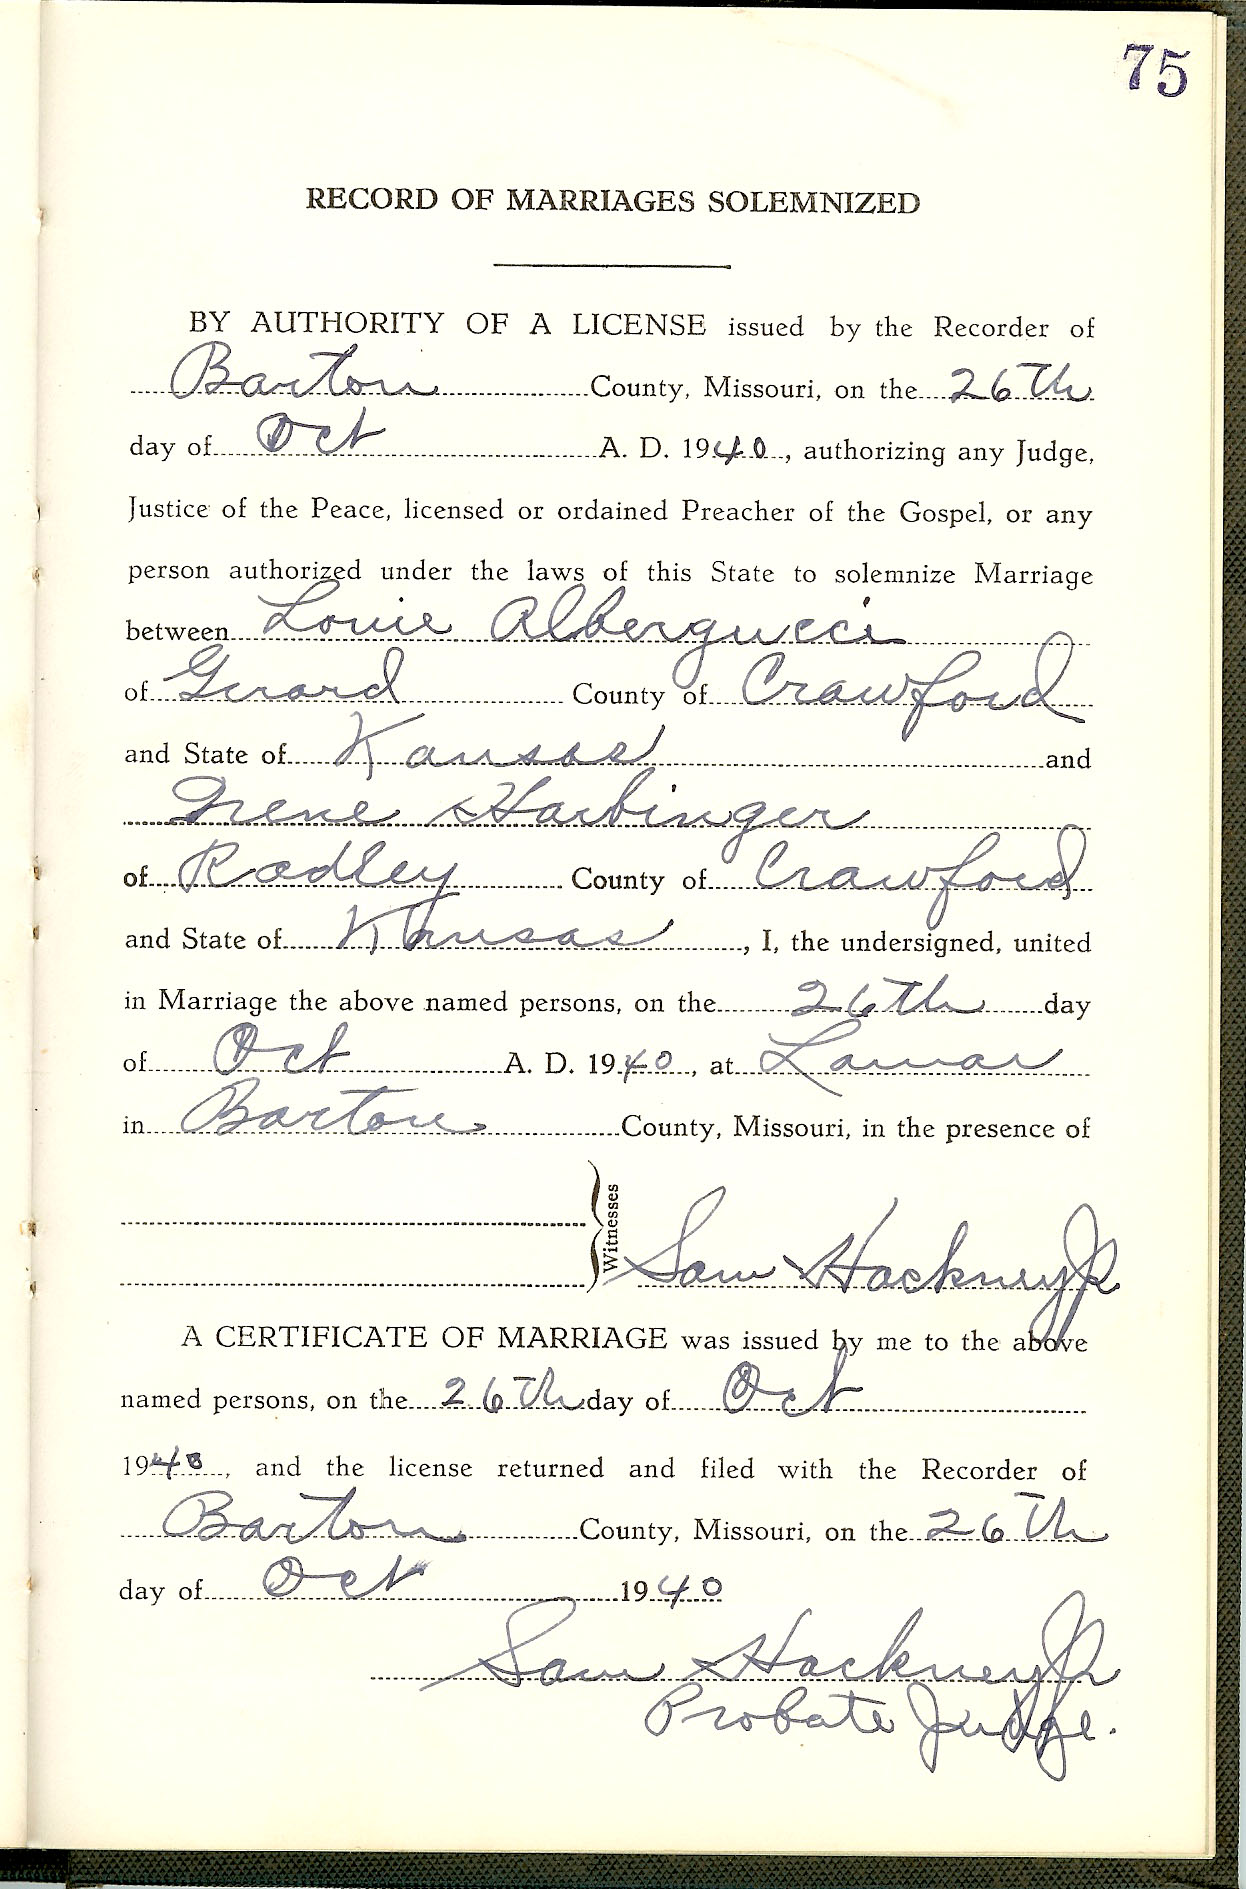 75
RECORD OF MARRIAGES SOLEMNIZED
BY AUTHORITY OF A LICENSE issued by the Recorder of
Barton County, Missouri, on the 26th
day of Oct A. D. 1940, authorizing any Judge,
Justice of the Peace, licensed or ordained Preacher of the Gospel, or any
person authorized under the laws of this State to solemnize Marriage
between Louie Albergucci
of Girard County of Crawford
and State of Kansas and
Irene Harbinger
of Radley County of Crawford
and State of Kansas, I, the undersigned, united
in Marriage the above named persons, on the 26th day
of Oct A. D. 1940, at Lamar
in Barton County, Missouri, in the presence of
Witnesses
Sam Hackney Jr
A CERTIFICATE OF MARRIAGE was issued by me to the above
named persons, on the 26th day of Oct
1940, and the license returned and filed with the Recorder of
Barton County, Missouri, on the 26th
day of Oct 1940
Sam Hackney Jr
Probate Judge.